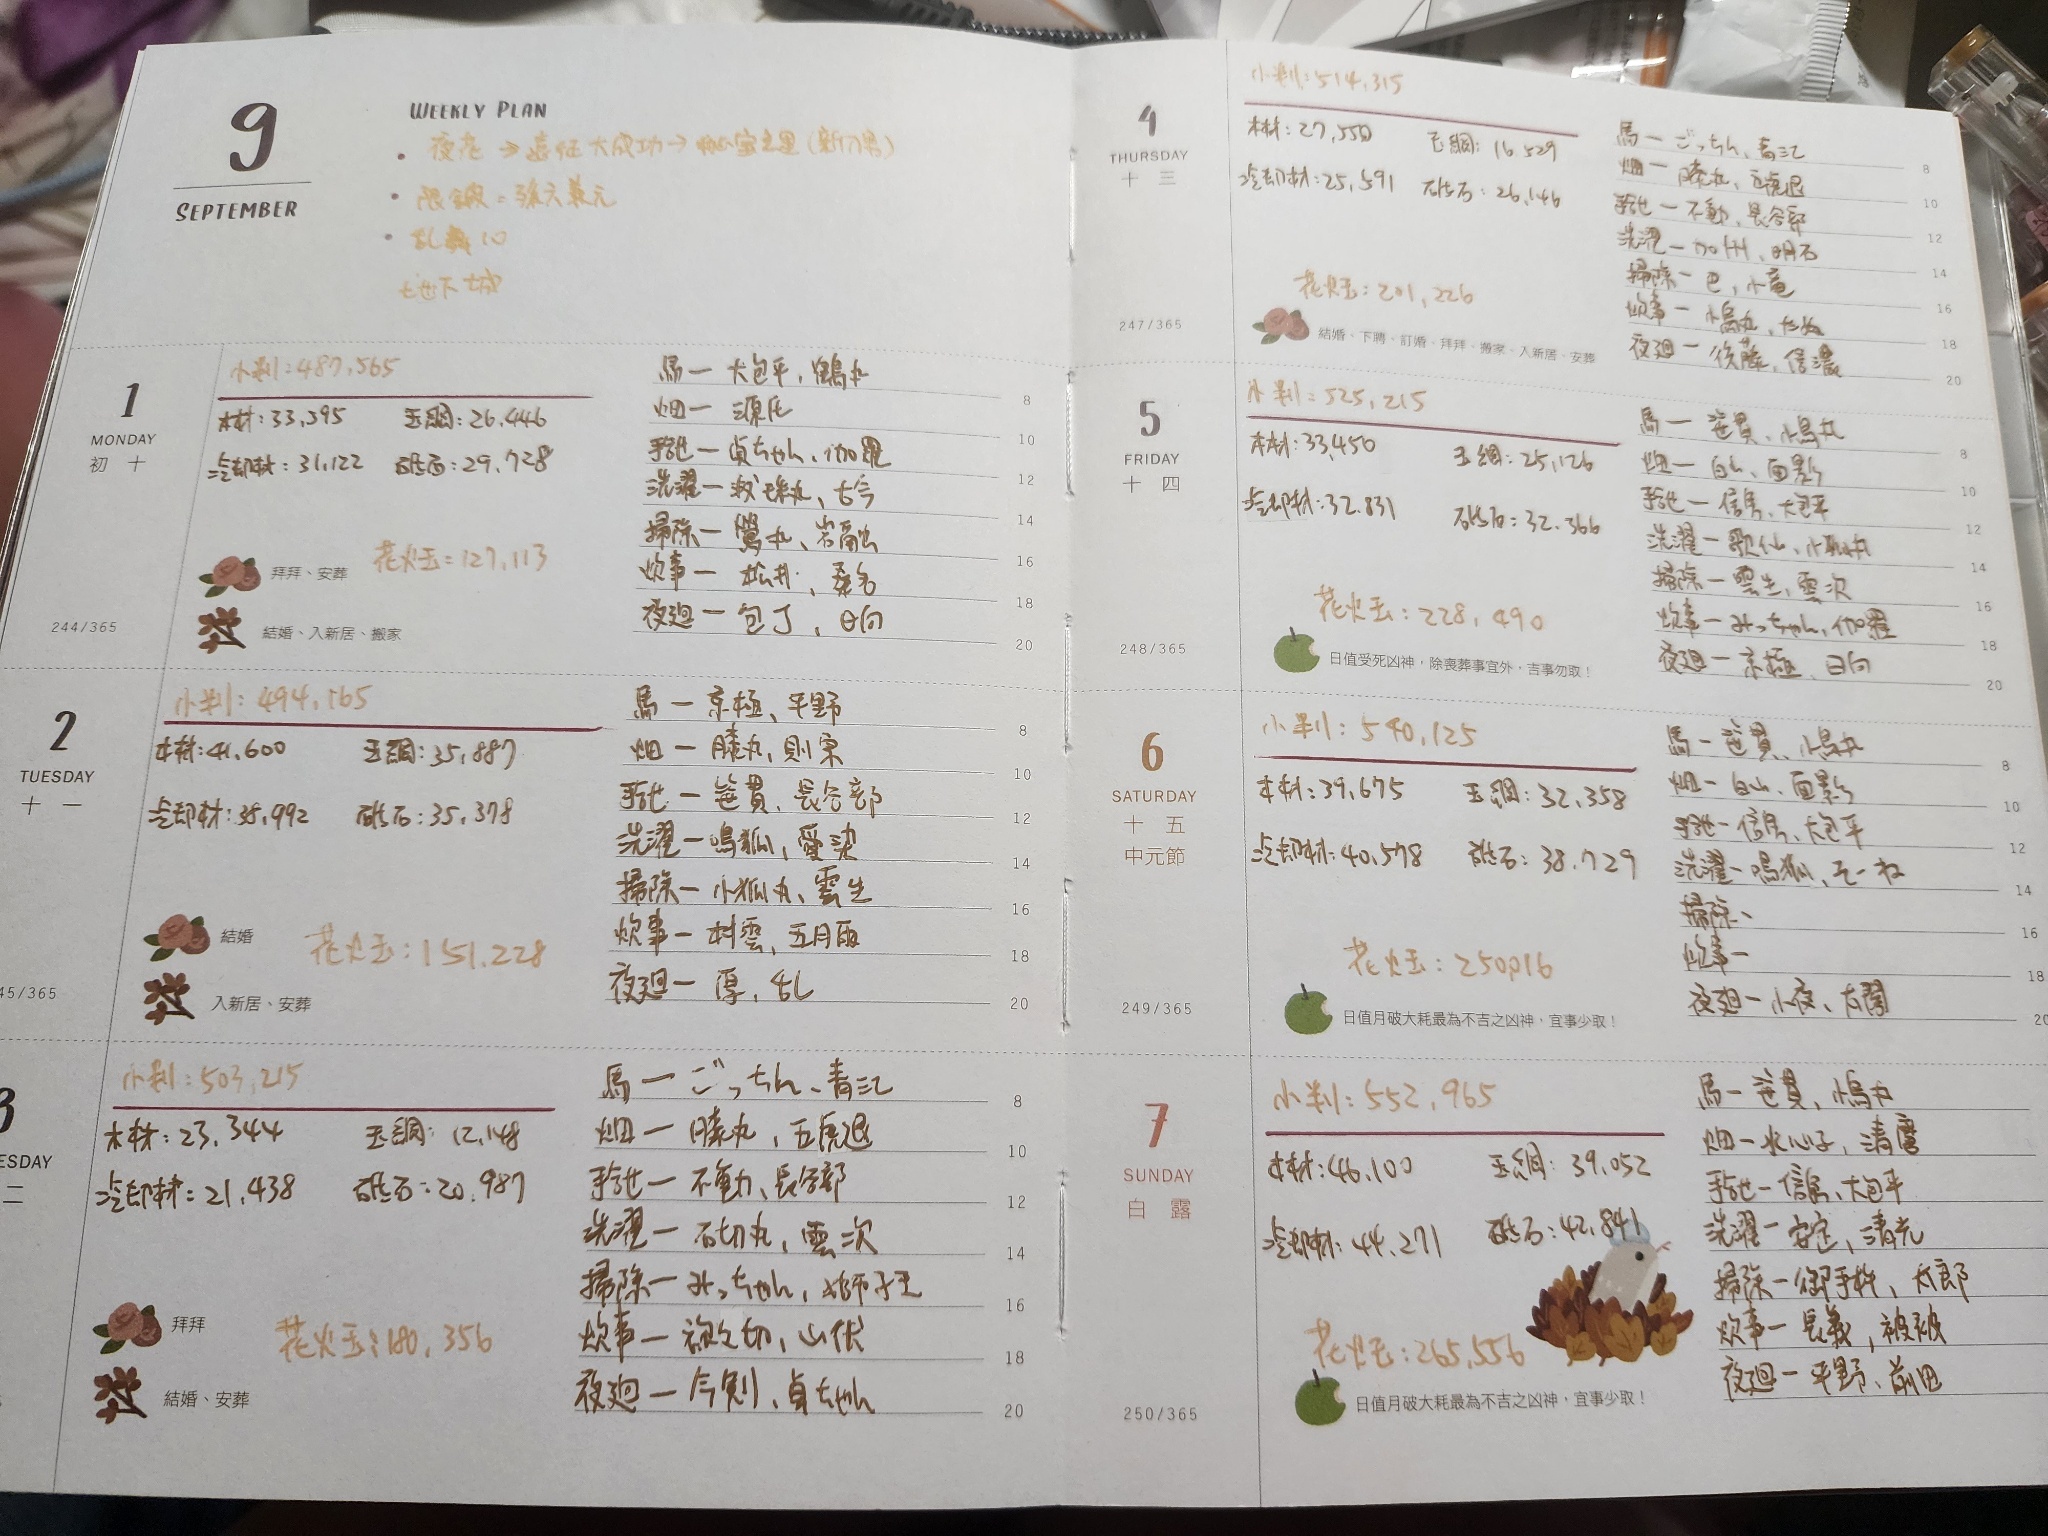 9
SEPTEMBER
WEEKLY PLAN
• 夜花 → 遠征大成功 → 秘宝之里(新刀男)
• 限鍛=孫六兼元
• 乱舞10
地下城
1
MONDAY
初 十
244/365
小判:487,565
木材:33,395 玉鋼:26,446
冷却材:31,122 砥石:29,728
花火玉:127,113
拜拜、安葬
結婚、入新居、搬家
馬一 大包平,鶴丸
畑一 源氏
手合一 貞ちゃん、伽羅
洗濯一 数珠丸、古今
掃除一 鶯丸、岩融
炊事一 松井、桑名
夜廻一 包丁,日向
8
10
12
14
16
18
20
2
TUESDAY
十 一
45/365
小判:494,165
木材:41,600 玉鋼:35,887
冷却材:38,992 砥石:35,378
花火玉:151,228
結婚
入新居、安葬
馬一 京極、平野
畑一 膝丸,則宗
手合一 笹貫、長谷部
洗濯一 鳴狐,愛染
掃除一 小狐丸、雲生
炊事一 村雲、五月雨
夜廻一 厚,乱
8
10
12
14
16
18
20
3
ESDAY
二
小判:503,215
木材:23,344 玉鋼:12,148
冷却材:21,438 砥石:20,987
花火玉:180,356
拜拜
結婚、安葬
馬一 ごっちん、青江
畑一 膝丸,五虎退
手合一 不動、長谷部
洗濯一 石切丸,雲次
掃除一 みっちゃん,獅子王
炊事一 祢々切,山伏
夜廻一 今剣、貞ちゃん
8
10
12
14
16
18
20
4
THURSDAY
十 三
247/365
小判:514,315
木材:27,550 玉鋼:16,529
冷却材:25,591 砥石:26,146
花火玉:201,226
結婚、下聘、訂婚、拜拜、搬家、入新居、安葬
馬一 ごっちん、青江
畑一 膝丸、五虎退
手合一 不動、長谷部
洗濯一 加州、明石
掃除一 巴,小竜
炊事一 小烏丸,
夜廻一 後藤,信濃
8
10
12
14
16
18
20
5
FRIDAY
十 四
248/365
小判:525,215
木材:33,450 玉鋼:25,126
冷却材:32,831 砥石:32,366
花火玉:228,490
日值受死凶神,除喪葬事宜外,吉事勿取!
馬一 笹貫、小烏丸
畑一 白山、面影
手合一 信房、大包平
洗濯一 歌仙、小狐丸
掃除一 雲生,雲次
炊事一 みっちゃん,伽羅
夜廻一 京極、日向
8
10
12
14
16
18
20
6
SATURDAY
十 五
中元節
249/365
小判:540,125
木材:39,675 玉鋼:32,358
冷却材:40,578 砥石:38,729
花火玉:250,016
日值月破大耗最為不吉之凶神,宜事少取!
馬一 笹貫、小烏丸
畑一 白山、面影
手合一 信房、大包平
洗濯一 鳴狐、そーね
掃除、
炊事一
夜廻一 小夜、太閤
8
10
12
14
16
18
20
7
SUNDAY
白 露
250/365
小判:552,965
木材:46,100 玉鋼:39,052
冷却材:44,271 砥石:42,841
花火玉:265,556
日值月破大耗最為不吉之凶神,宜事少取!
馬一 笹貫、小烏丸
畑一 水心子,清麿
手合一 信房、大包平
洗濯一 安定,清光
掃除一 御手杵,太郎
炊事一 長義,被被
夜廻一 平野、前田